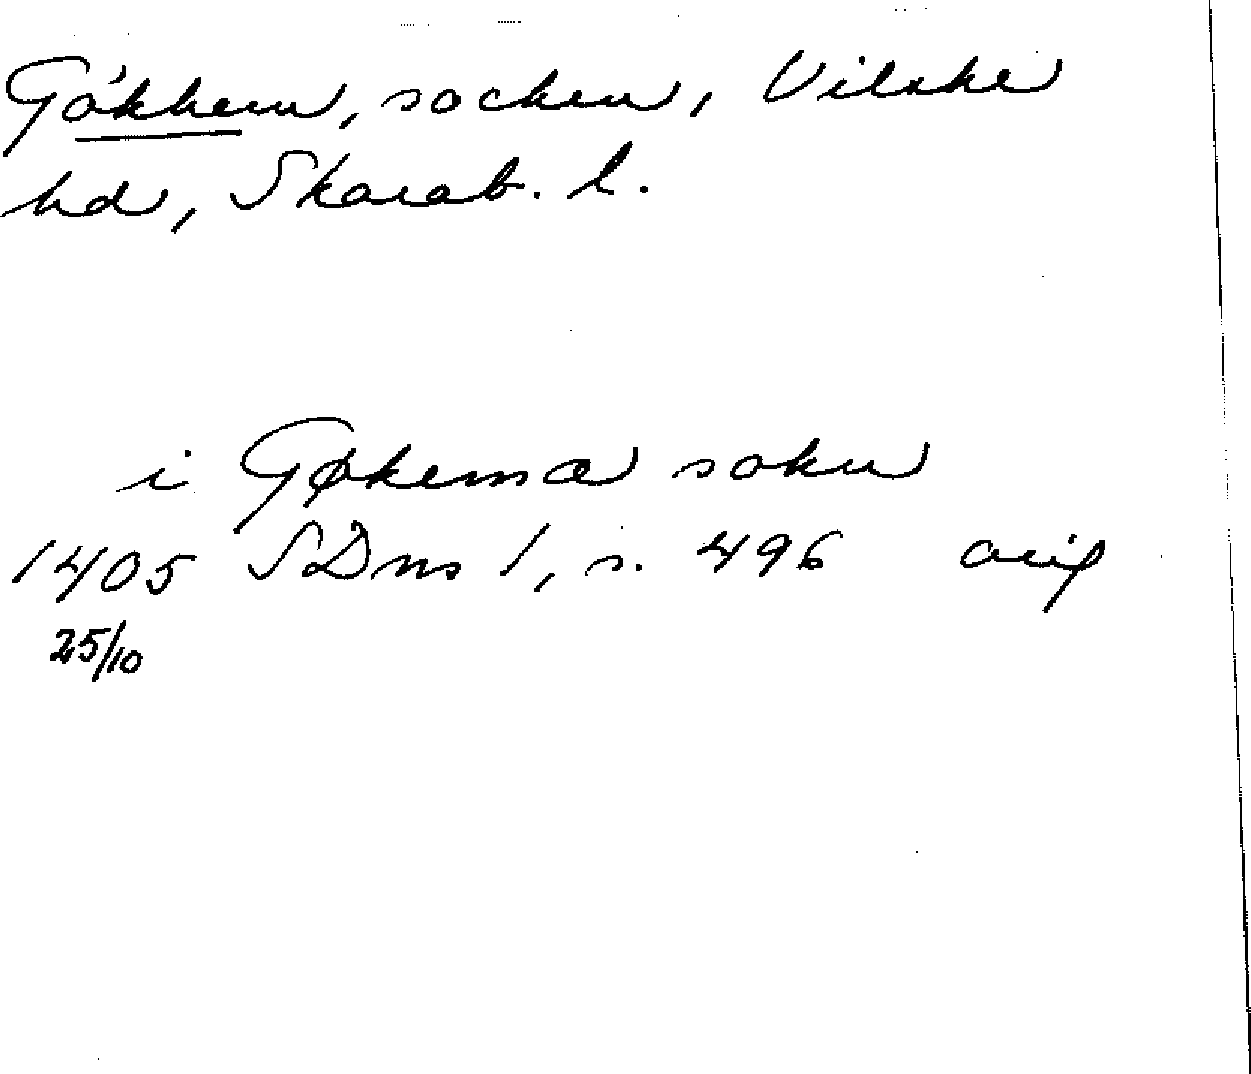 Gökhem, socken, Vilske
hd, Skarab. l.
i Gøkema sokn
1405 SDns 1, s. 496 orig
25/10